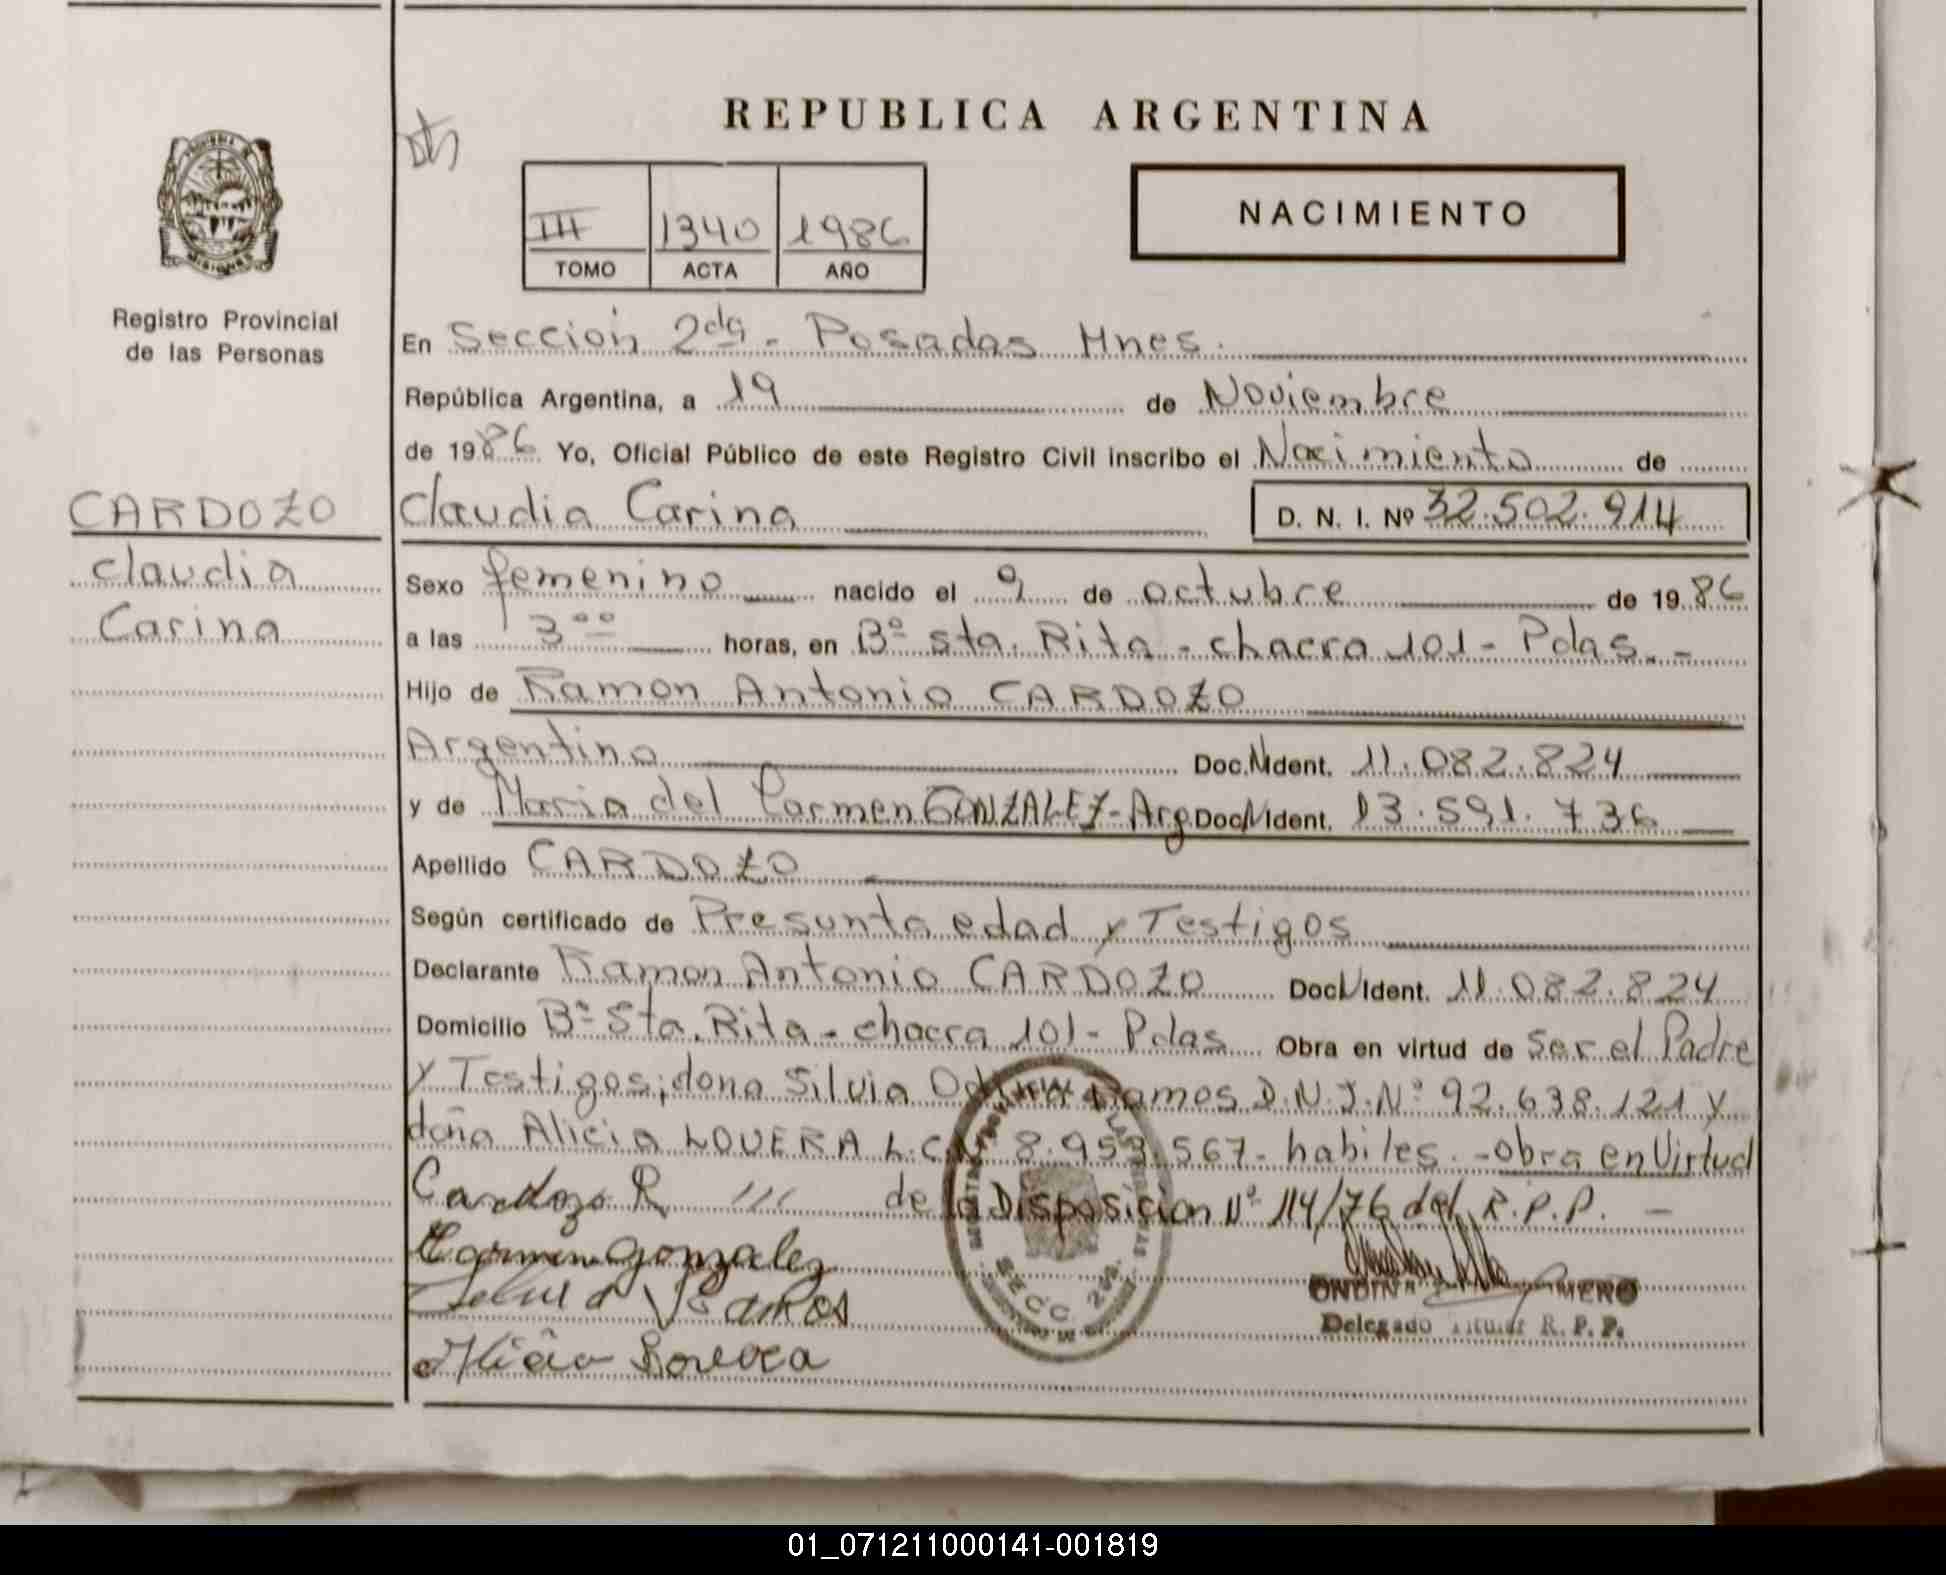 REPUBLICA ARGENTINA
NACIMIENTO
III 1340 1986
TOMO ACTA AÑO
MISIONES
Registro Provincial
de las Personas
En Sección 2da - Posadas Mnes.
República Argentina, a 19 de Noviembre
de 1986 Yo, Oficial Público de este Registro Civil inscribo el Nacimiento de
CARDOZO
Claudia
Carina
Claudia Carina D. N. I. Nº 32.502.914
Sexo femenino nacido el 9 de octubre de 1986
a las 3°° horas, en Bº Sta. Rita - chacra 101 - Pdas. -
Hijo de Ramon Antonio CARDOZO
Argentino Doc. Ident. 11.082.824
y de Maria del Carmen GONZALEZ - Arg. Doc. Ident. 13.591.736
Apellido CARDOZO
Según certificado de Presunta edad y Testigos
Declarante Ramon Antonio CARDOZO Doc. Ident. 11.082.824
Domicilio Bº Sta. Rita - chacra 101 - Pdas Obra en virtud de Ser el Padre
y Testigos; dona Silvia Ramos D.N.I. Nº 92.638.121 y
doña Alicia LOVERA L.C. 8.953.567 - habiles. - Obra en Virtud
Cardozo R de la Disposicion Nº 114/76 del R.P.P. -
Carmen Gonzalez
Ramos
SECC. 2da.
Delegado Titular R. P. P.
01_071211000141-001819